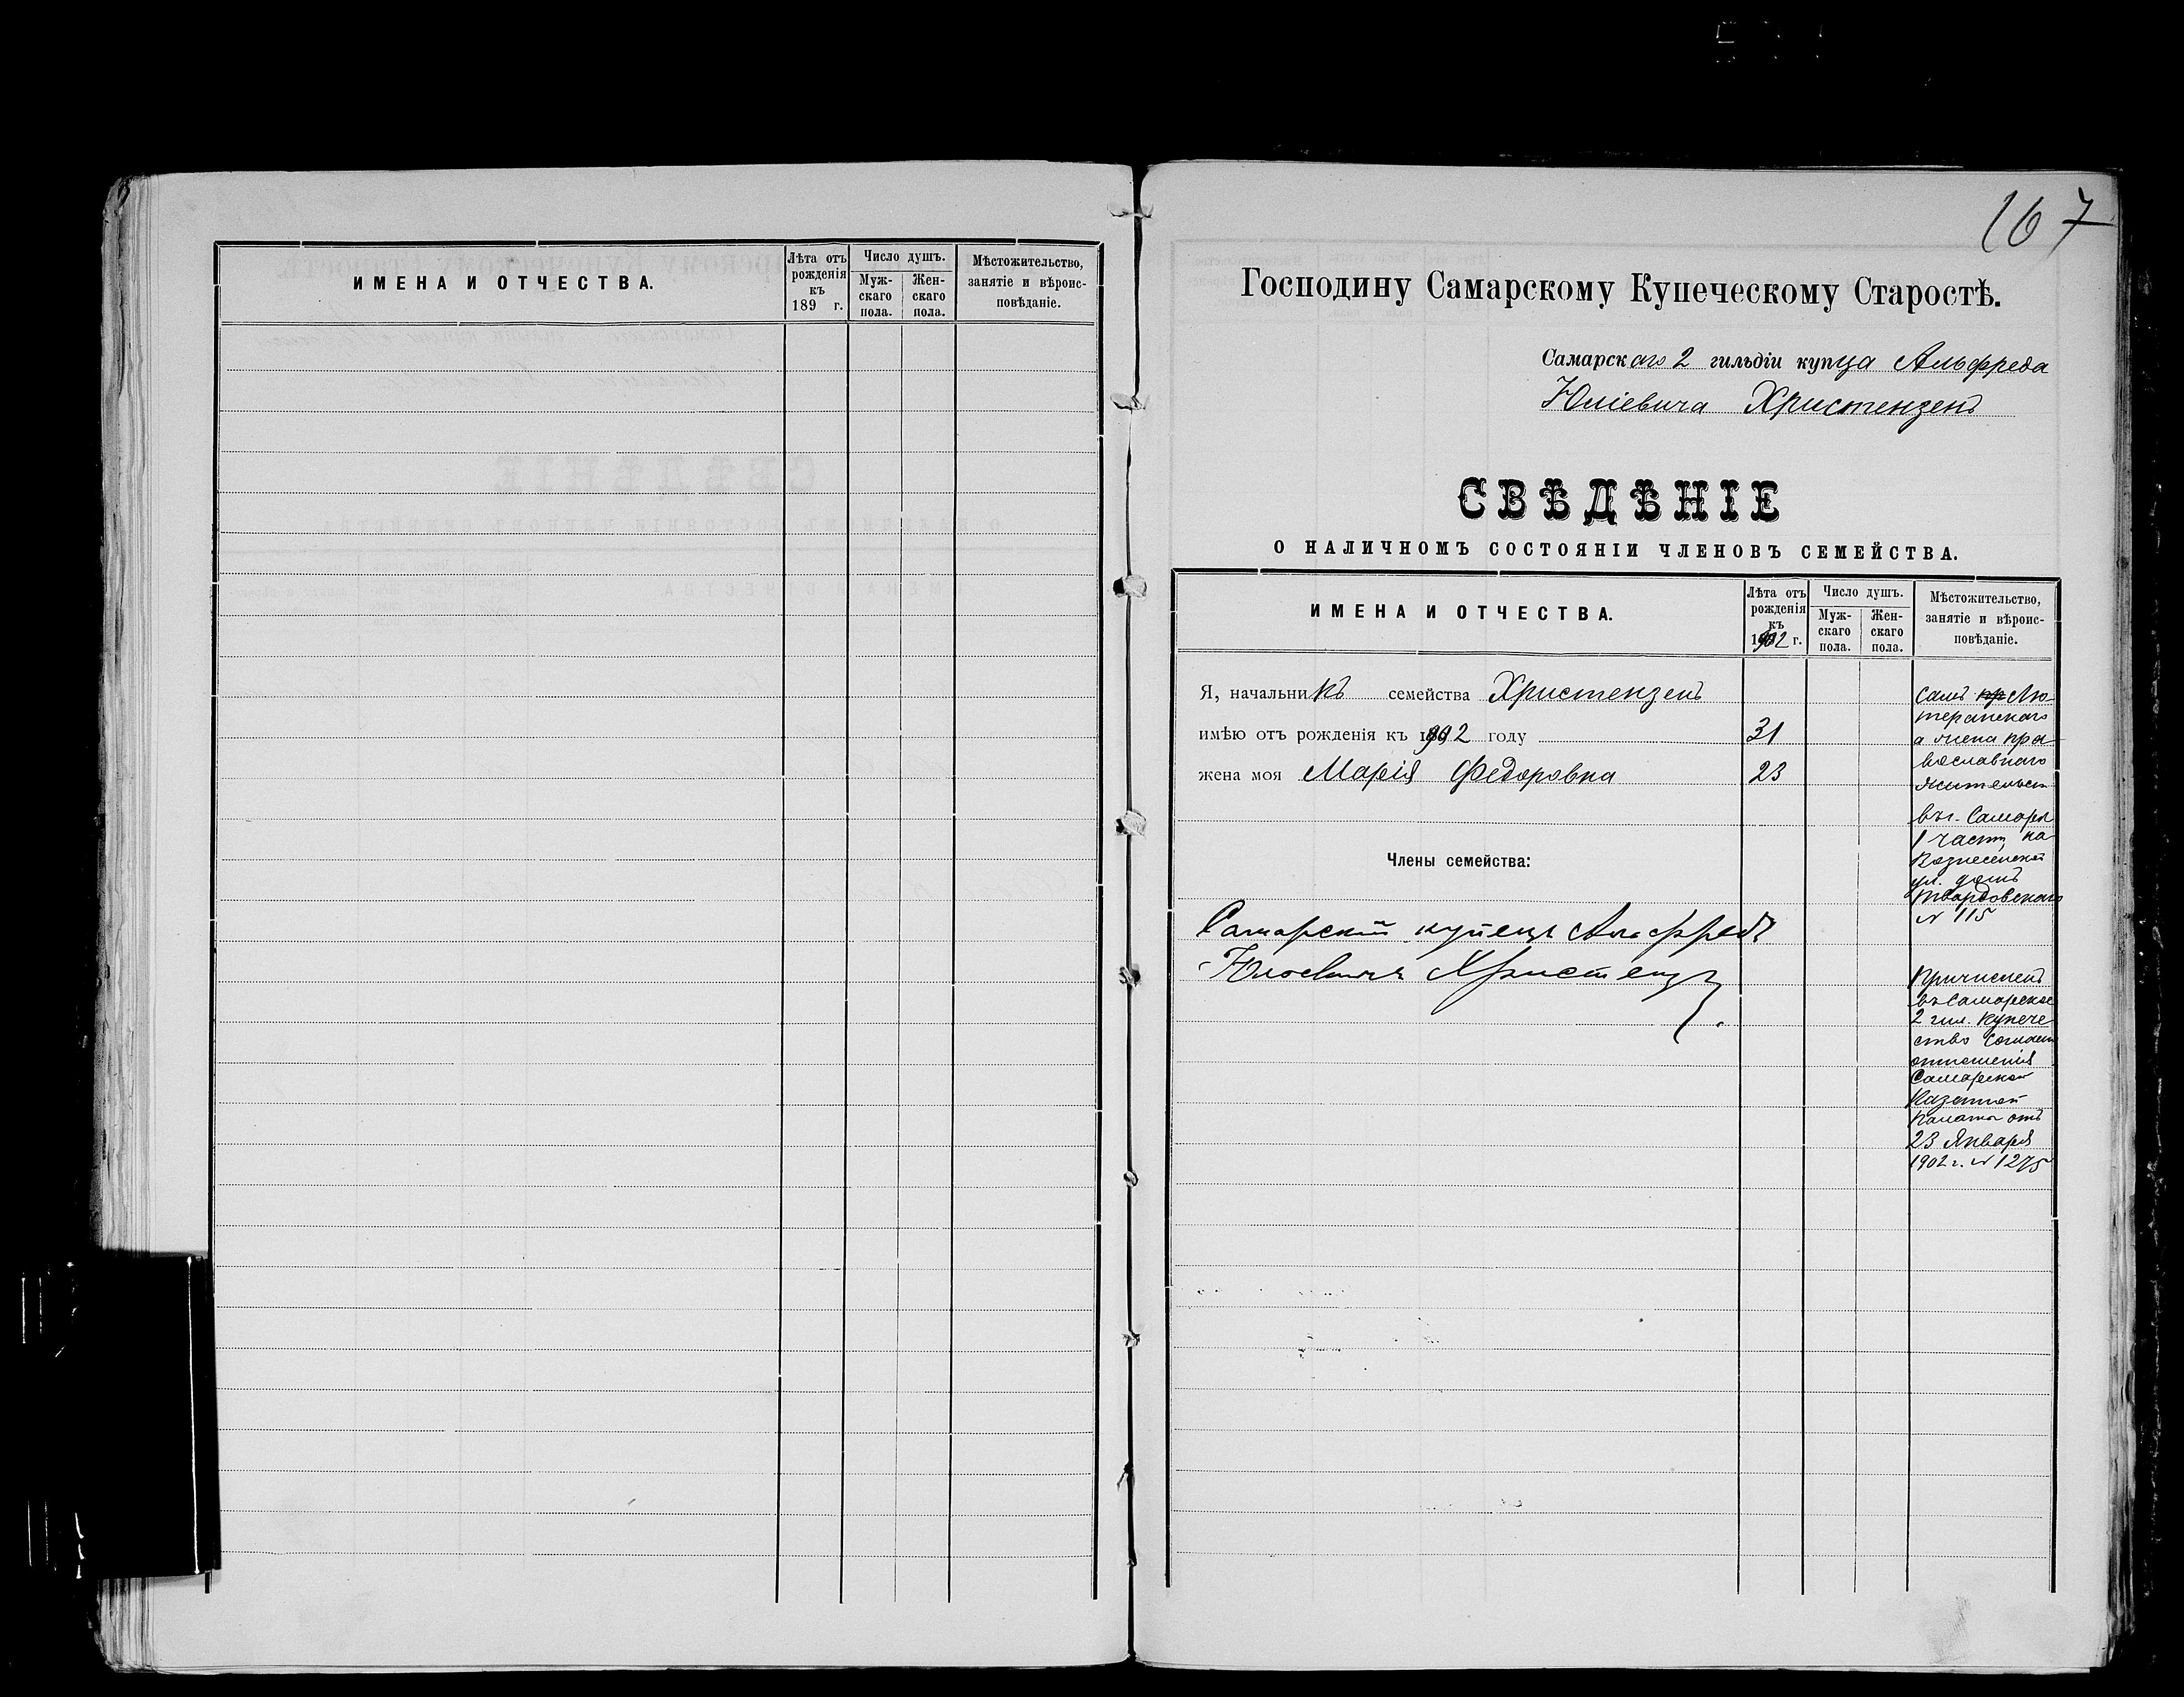 ИМЕНА И ОТЧЕСТВА.
Лѣта отъ рожденія къ 189 г.
Число душъ.
Муж-скаго пола.
Жен-скаго пола.
Мѣстожительство, занятіе и вѣроис-повѣданіе.
167
Господину Самарскому Купеческому Старостѣ.
Самарскаго 2 гильдіи купца Альфреда
Юліевича Христензенъ
СВѢДѢНІЕ
О НАЛИЧНОМЪ СОСТОЯНІИ ЧЛЕНОВЪ СЕМЕЙСТВА.
ИМЕНА И ОТЧЕСТВА.
Лѣта отъ рожденія къ 1902 г.
Число душъ.
Муж-скаго пола.
Жен-скаго пола.
Мѣстожительство, занятіе и вѣроис-повѣданіе.
Я, начальникъ семейства Христензенъ
имѣю отъ рожденія къ 1902 году 31
жена моя Марія Федоровна 23
Члены семейства:
Самарскій купецъ Альфредъ
Юльевичъ Христензенъ
Самъ Лю-
теранскаго
а жена пра-
вославнаго
жительст
въ г. Самарѣ
1 части, на
Вознесенской
ул. домъ
Твардовскаго
№ 115
Причисленъ
въ Самарское
2 гил. купече
ство согласно
отношенія
Самарской
Казенной
Палаты отъ
23 Января
1902 г. № 1275